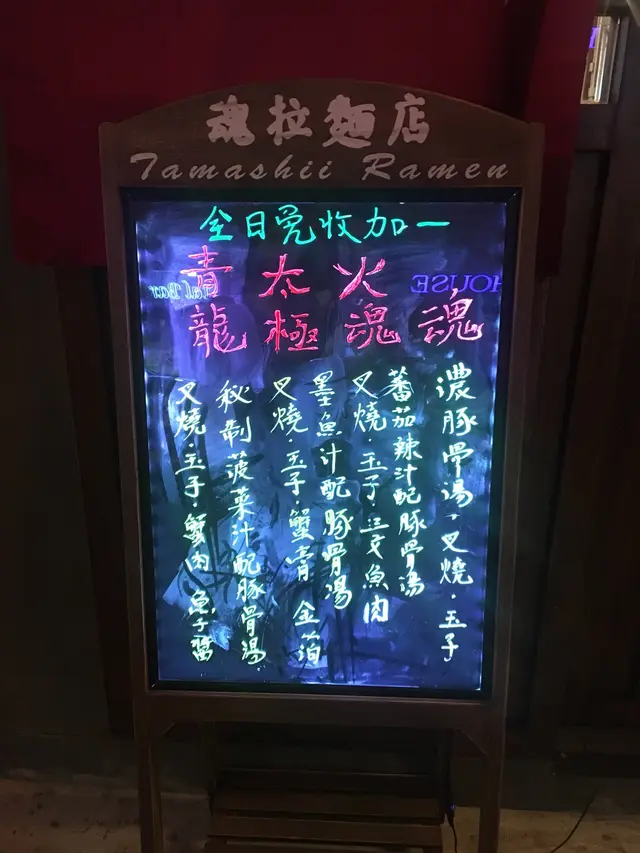 魂拉麵店
Tamashii Ramen
全日免收加一
魂
濃豚骨湯·叉燒·玉子
火魂
蕃茄辣汁配豚骨湯
叉燒·玉子·三文魚肉
太極
墨魚汁配豚骨湯
叉燒·玉子·蟹膏 金箔
青龍
秘制菠菜汁配豚骨湯
叉燒·玉子·蟹肉 魚子醬
HOUSE